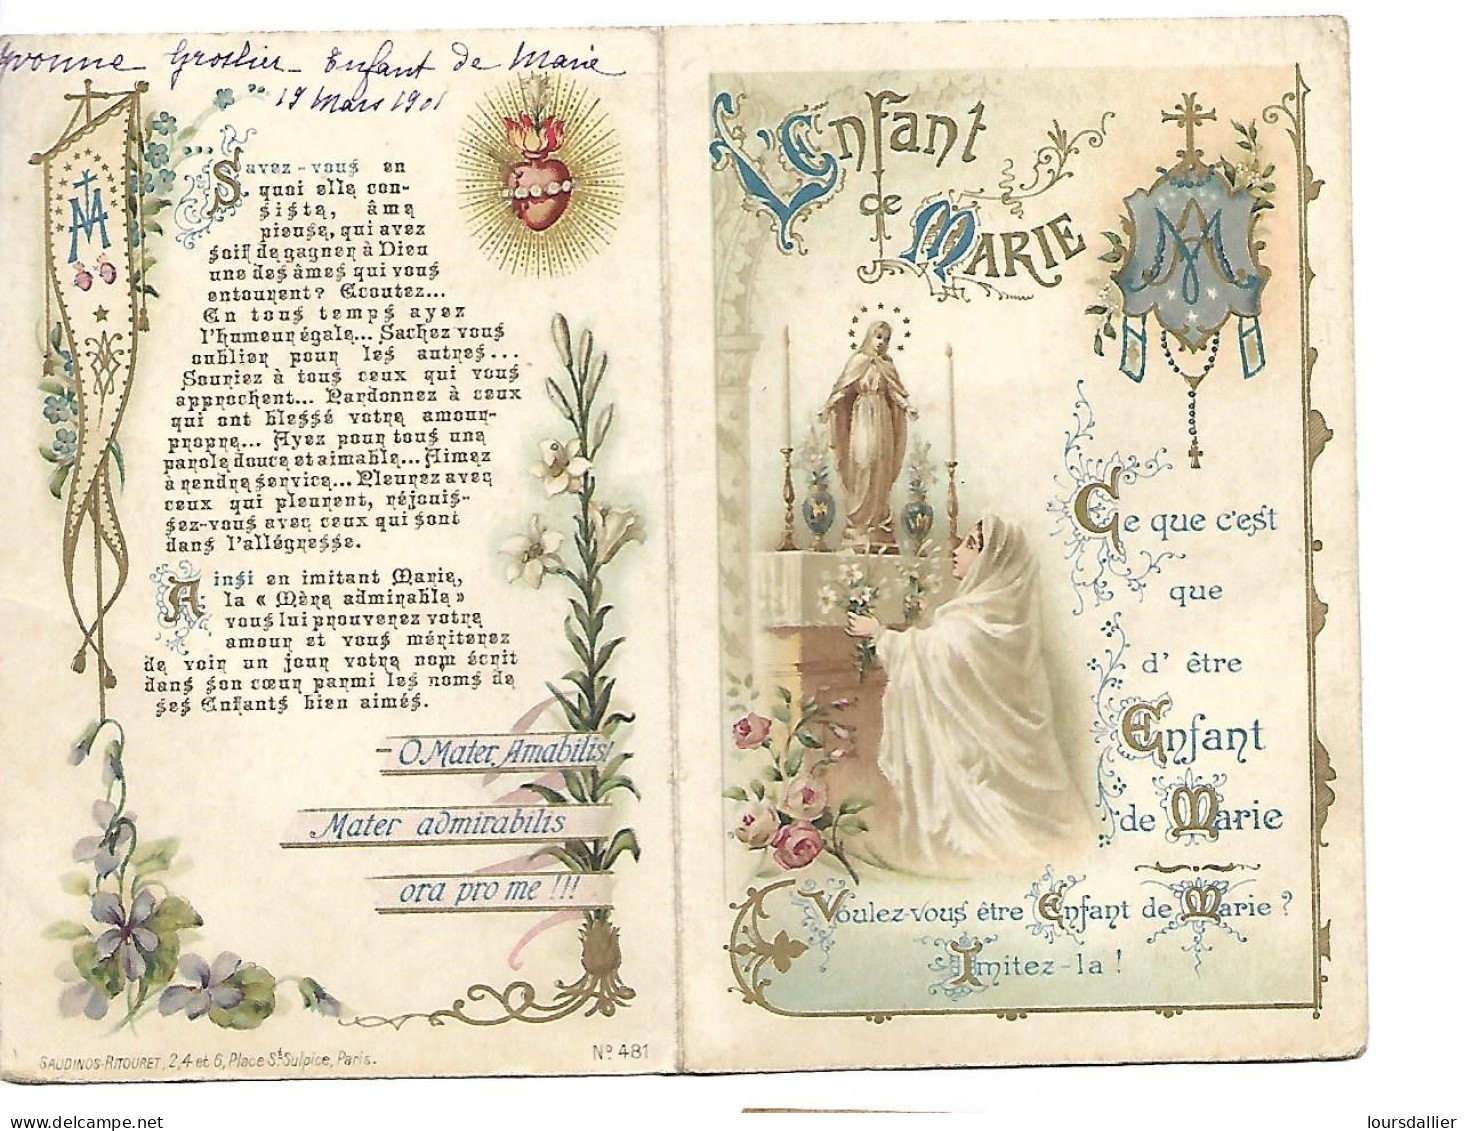 Yvonne Groslier - Enfant de Marie
19 Mars 1901
Savez-vous en
quoi elle con-
siste, âme
pieuse, qui avez
soif de gagner à Dieu
une des âmes qui vous
entourent? Ecoutez...
En tous temps ayez
l'humeur égale... Sachez vous
oublier pour les autres...
Souriez à tous ceux qui vous
approchent... Pardonnez à ceux
qui ont blessé votre amour-
propre... Ayez pour tous une
parole douce et aimable... Aimez
à rendre service... Pleurez avec
ceux qui pleurent, réjouis-
sez-vous avec ceux qui sont
dans l'allégresse.
Ainsi en imitant Marie,
la « Mère admirable »
vous lui prouverez votre
amour et vous mériterez
de voir un jour votre nom écrit
dans son cœur parmi les noms de
ses Enfants bien aimés.
- O Mater Amabilis!
Mater admirabilis
ora pro me !!!
SAUDINOS-RITOURET, 2, 4 et 6, Place St Sulpice, Paris.
No 481
L'Enfant
de
MARIE
Ce que c'est
que
d' être
Enfant
de Marie
Voulez-vous être Enfant de Marie ?
Imitez-la !
loursdallier